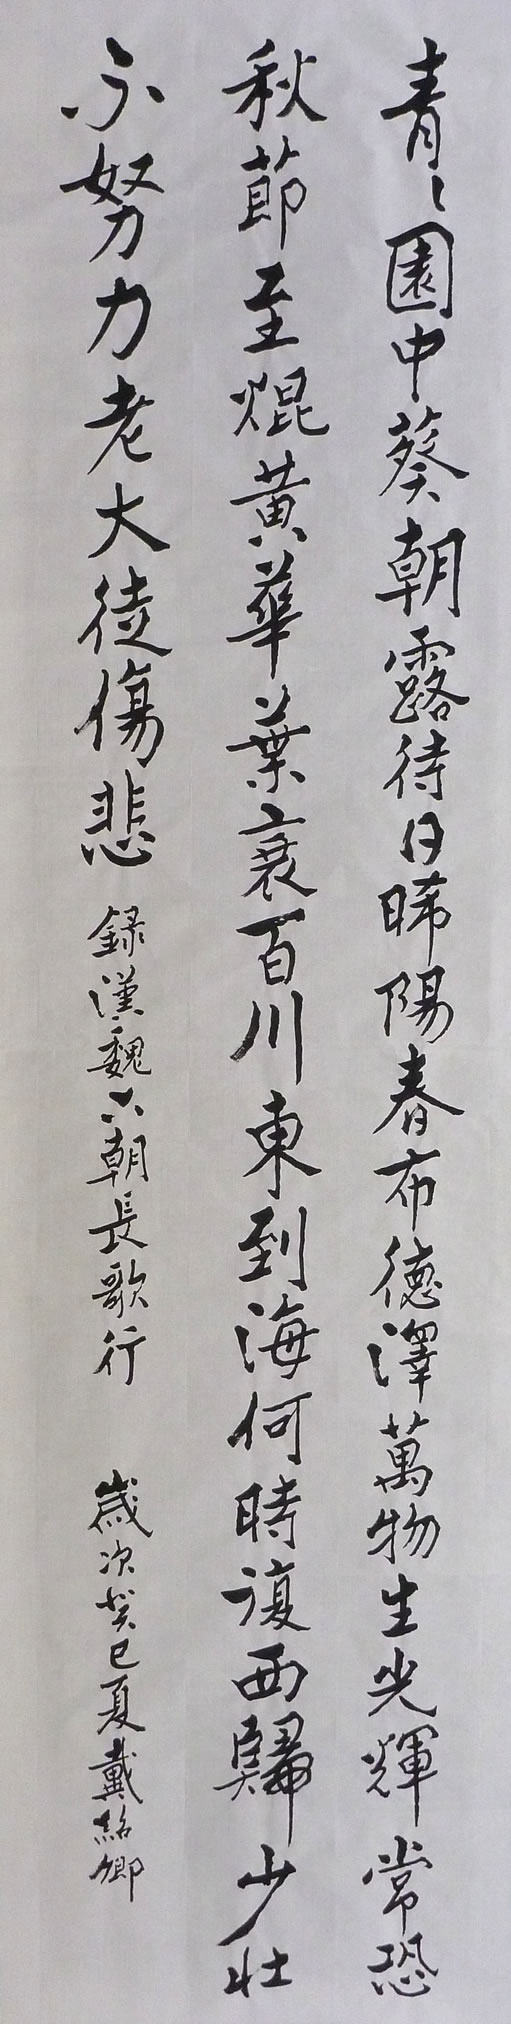 青〻園中葵朝露待日晞陽春布德澤萬物生光輝常恐
秋節至焜黃華葉衰百川東到海何時復西歸少壯
不努力老大徒傷悲 錄漢魏六朝長歌行 歲次癸巳夏戴紹卿